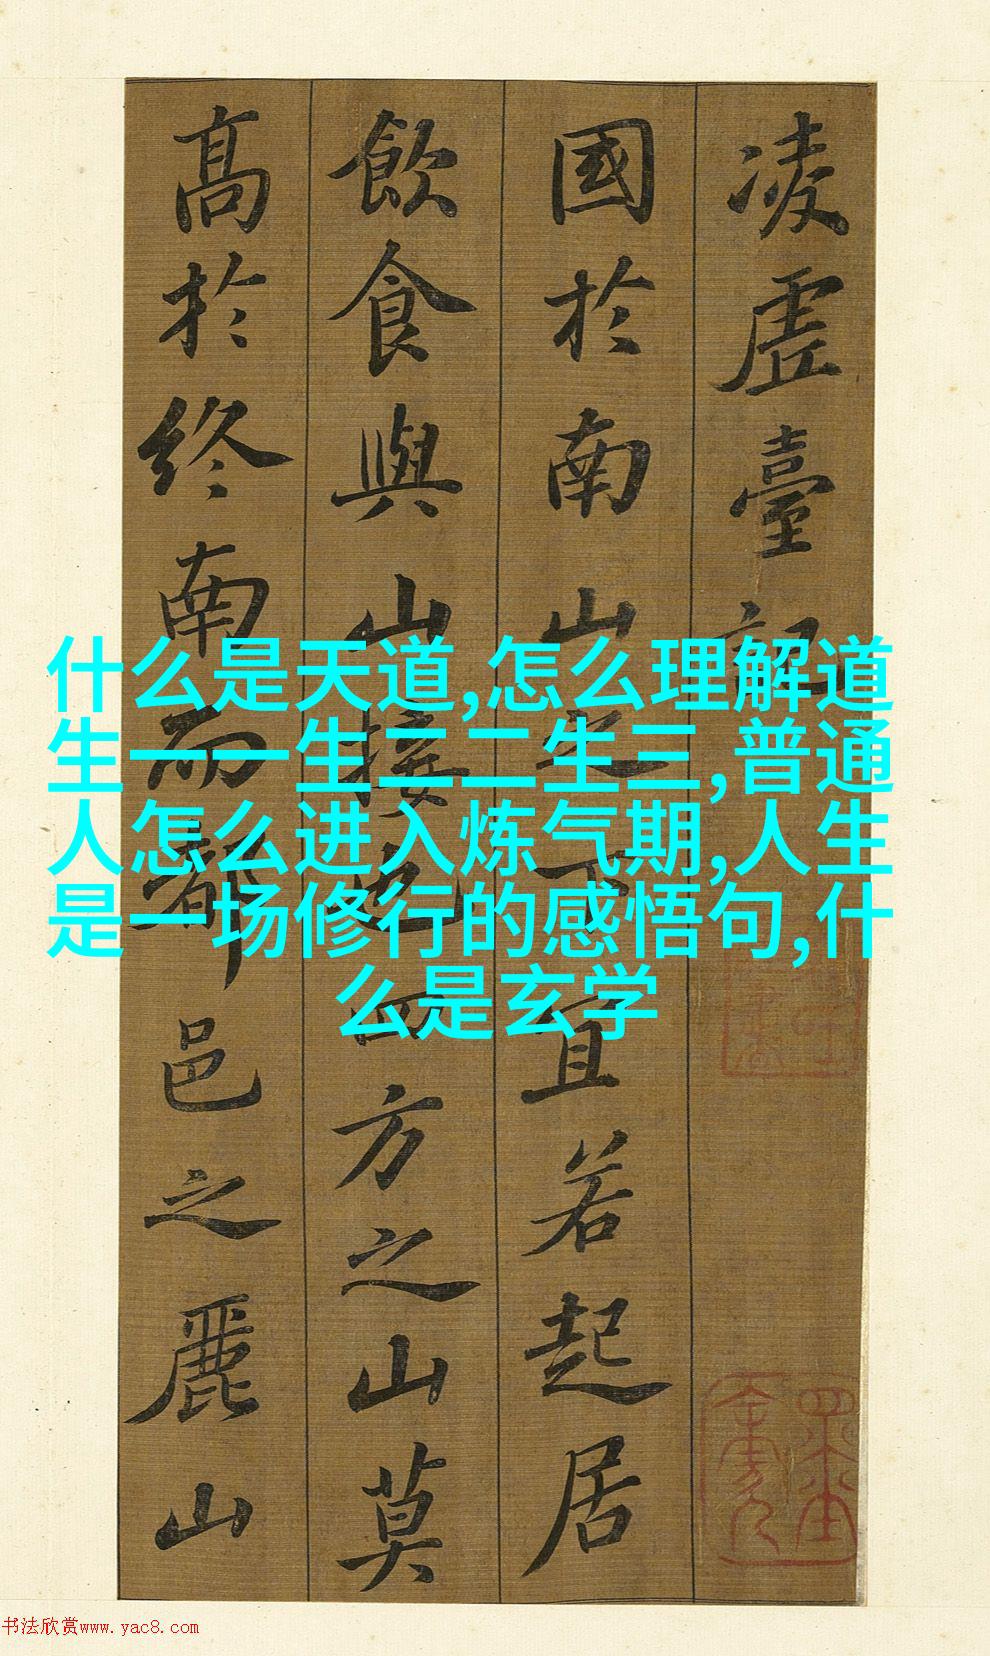 凌虛臺記
國於南山之下宜若起居
飲食與山接也四方之山莫
高於終南而都邑之麗山
什么是天道,怎么理解道
生一一生二二生三,普通
人怎么进入炼气期,人生
是一场修行的感悟句,什
么是玄学
书法欣赏www.yac8.com